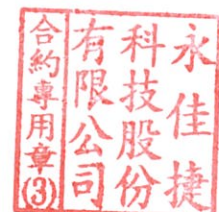 永佳捷
科技股份
有限公司
合約專用章(3)